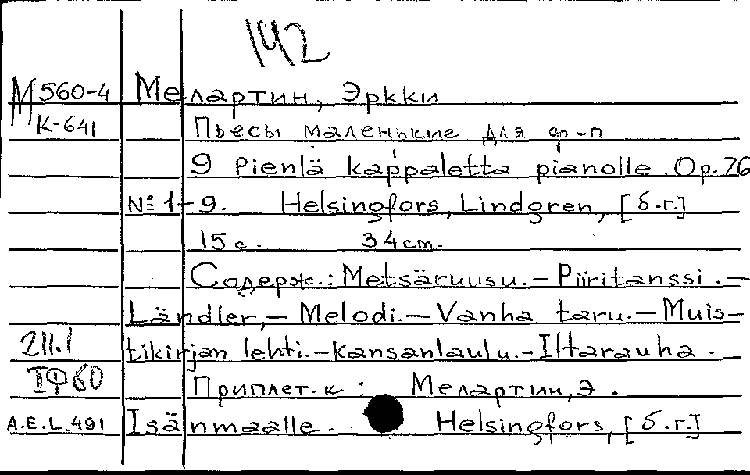 142
М560-4 Мелартин, Эркки
К-641 Пьесы маленькие для ф-п
9 Pienlä kappaletta pianolle Op.76
№ 1-9. Helsingfors, Lindgren, [б.г.]
15 с. 34 cm.
Содерж.: Metsäruusu.—Piiritanssi.—
Ländler,—Melodi.—Vanha taru.—Muis-
211.1 tikirjan lehti.—Kansanlaulu.—Iltarauha.
IФ60 Приплет. к: Мелартин, Э.
A.E.L.491 Isänmaalle. Helsingfors, [б.г.]